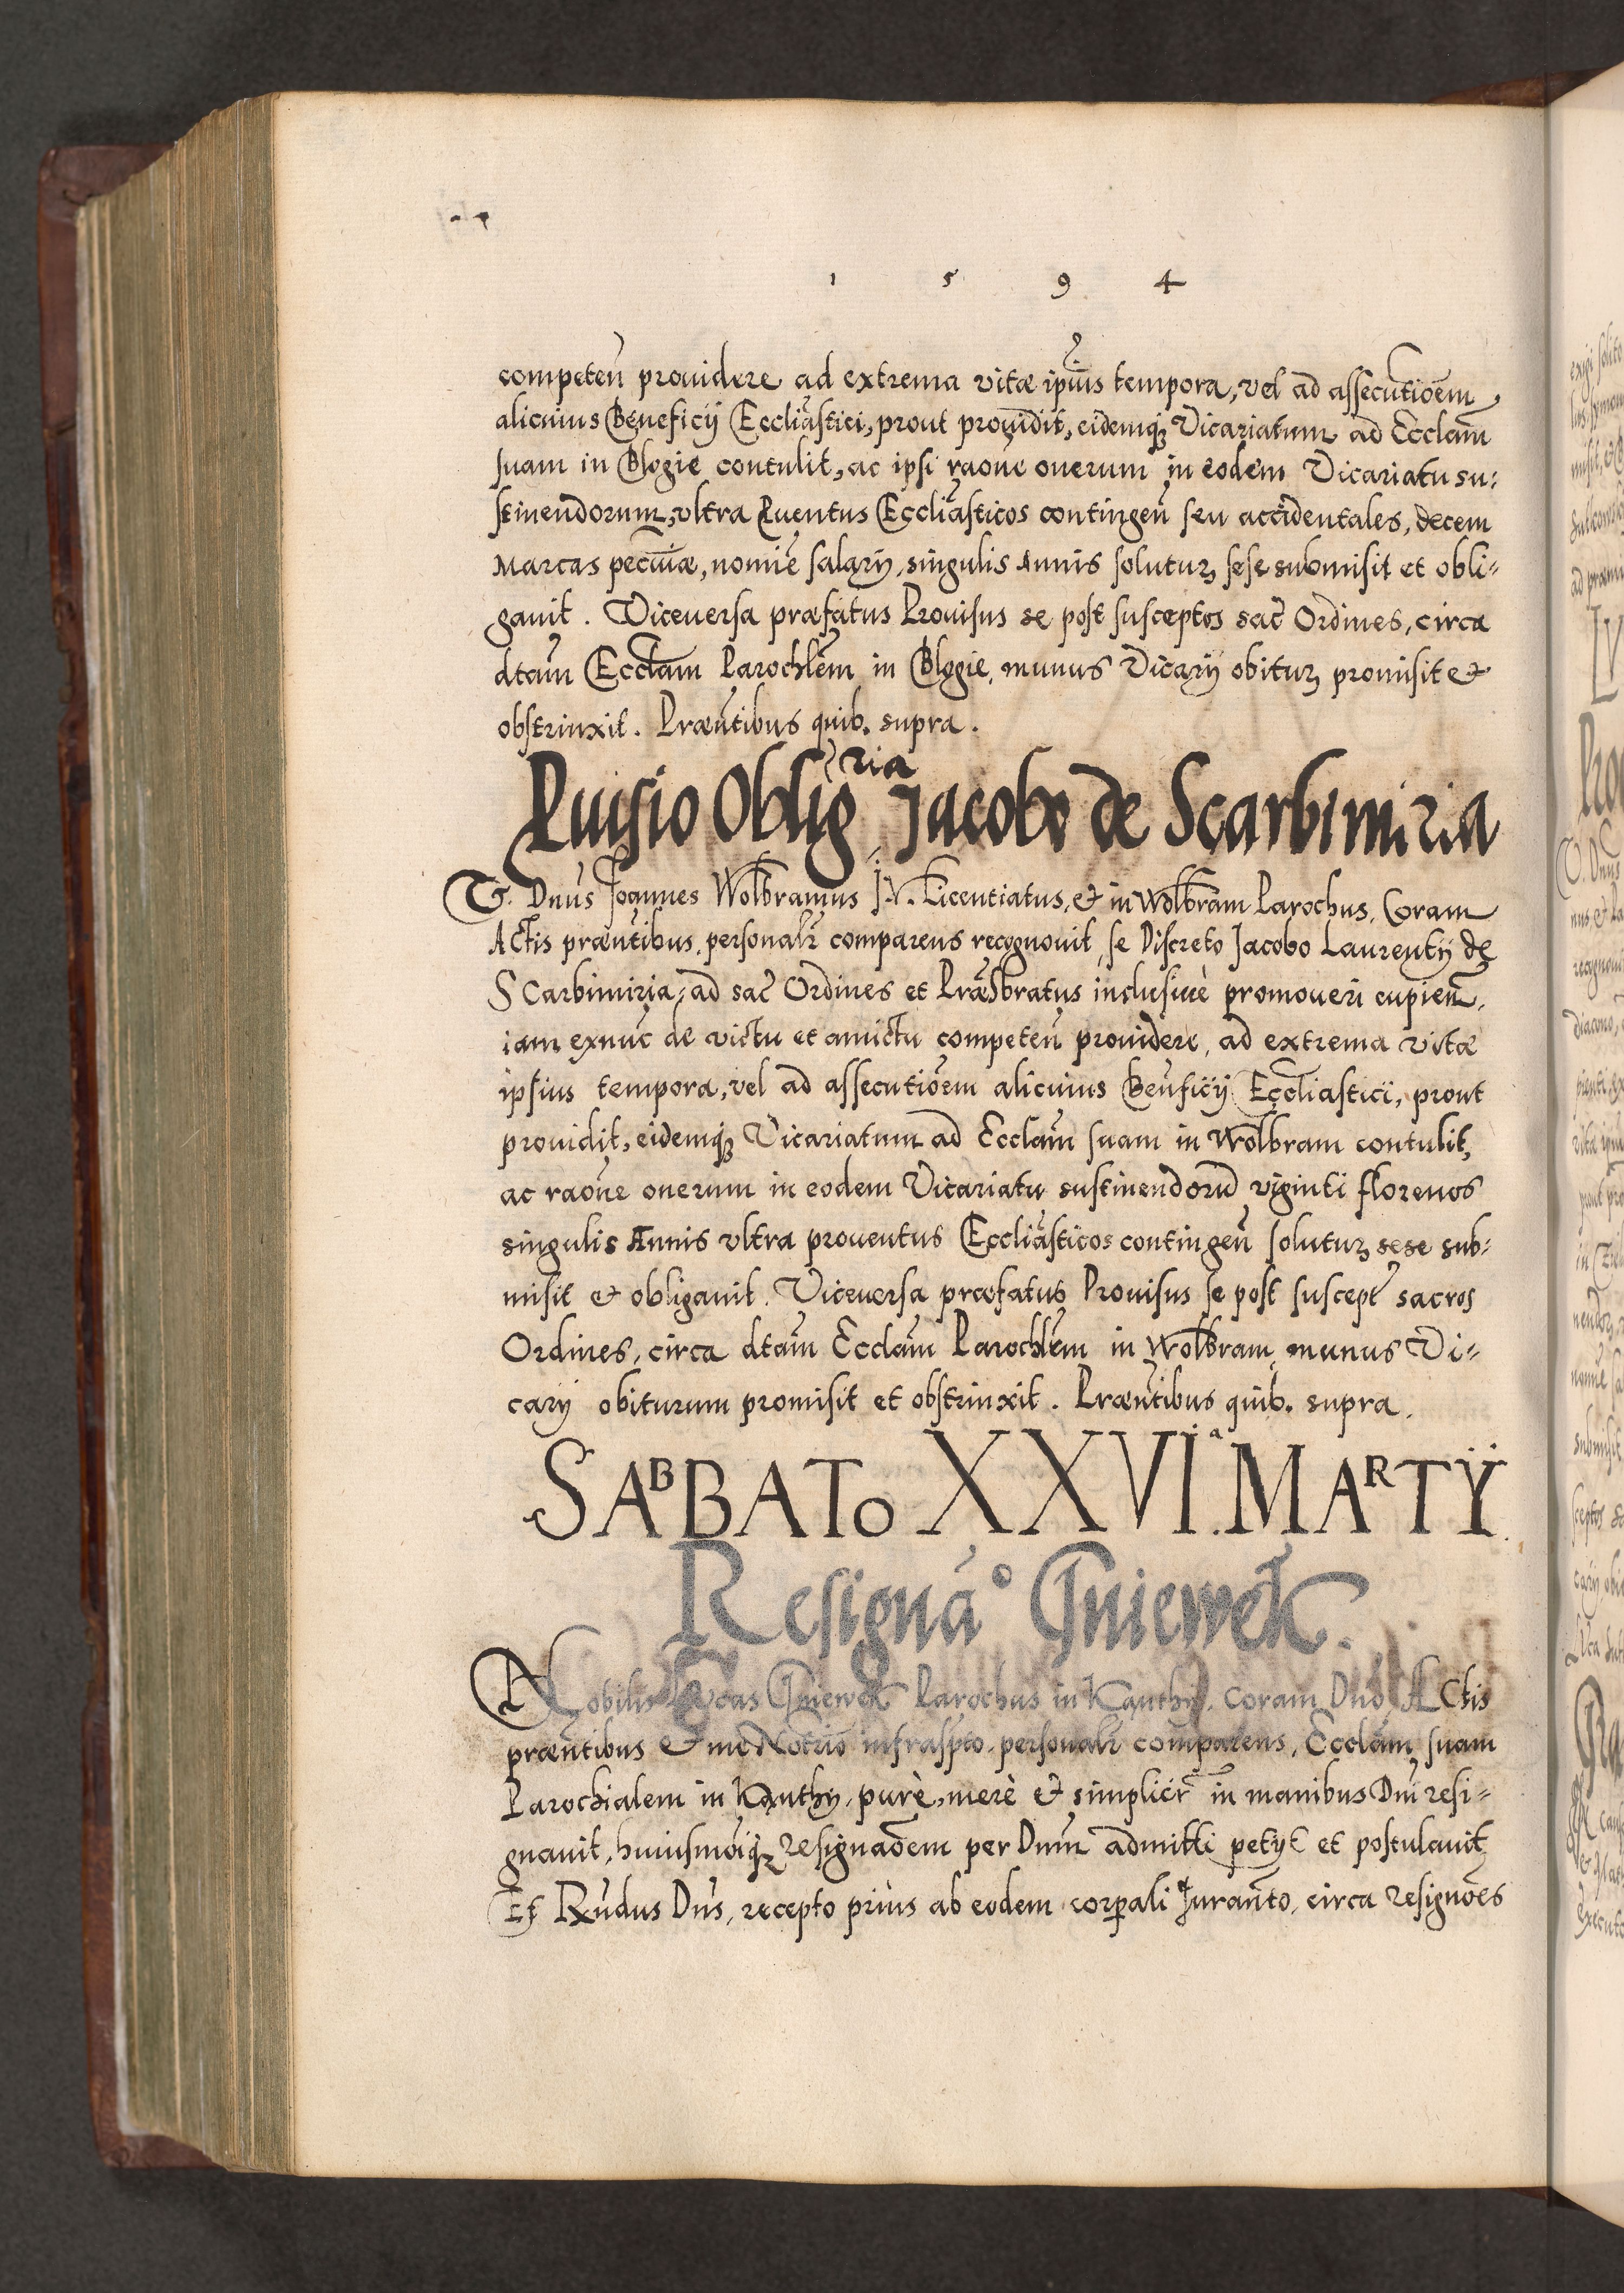 1 5 9 4
competeñ prouidere ad extrema vitæ ipiũs tempora, vel ad assecutioẽm
alicuius Beneficij Eccliãstici, prout prouidit, eidemq́ꝫ Vicariatum ad Ecclam̃
suam in Blogie contulit, ac ipsi raõne onerum in eodem Vicariatu su:
stinendorum, vltra ꝓuentus Eccliãsticos contingeñ seu accidentales, decem
Marcas pecũiæ, nomiẽ salarij, singulis Annis soluturꝫ sese submisit et obli⸗
gauit. Viceuersa præfatus Prouisus se post susceptos sac̃ Ordines, circa
dtam̃ Ecclam̃ Parochlẽm in Blogie, munus Vicarij obiturꝫ promisit et
obstrinxit. Præñtibus quib. supra.
Ꝓuisio Oblig̃ria Jacobo de Scarbimiria
V. Dnũs Joannes Wolbramus J. V. Licentiatus, et in Wolbram Parochus, Coram
Actis præñtibus, personalr̃ comparens recognouit, se Discreto Jacobo Laurentij de
Scarbimiria, ad sac̃ Ordines et Præsbratus inclusiuè promoueri cupieñ,
iam exnuc̃ de victu et amictu competeñ prouidere, ad extrema vitæ
ipsius tempora, vel ad assecutioẽm alicuius Beñficij Eccliãstici, prout
prouidit, eidemq́ꝫ Vicariatum ad Ecclam̃ suam in Wolbram contulit,
ac raõne onerum in eodem Vicariatu sustinendorũ viginti florenos
singulis Annis vltra prouentus Eccliãsticos contingeñ soluturꝫ sese sub:
misit et obligauit. Viceuersa præfatus Prouisus se post suscept̃ sacros
Ordines, circa dtam̃ Ecclam̃ Parochlẽm in Wolbram, munus Vi⸗
carij obiturum promisit et obstrinxit. Præñtibus quib. supra.
SABBATO XXVIᵃ. MARTIJ.
Resignãᵒ Gniewek.
Nobilis Lucas Gniewek Parochus in Kąnthy, coram Dnõ, Actis
præñtibus et me Notriõ infrasp̃to, personalr̃ comparens, Ecclam̃ suam
Parochialem in Kąnthy, purè, merè et simplicir̃ in manibus Dnĩ resi⸗
gnauit, huiusmõiq́ꝫ resignaõem per Dnm̃ admitti petijt et postulauit
Et Rñdus Dnũs, recepto priùs ab eodem corꝑali Juranto, circa resignões